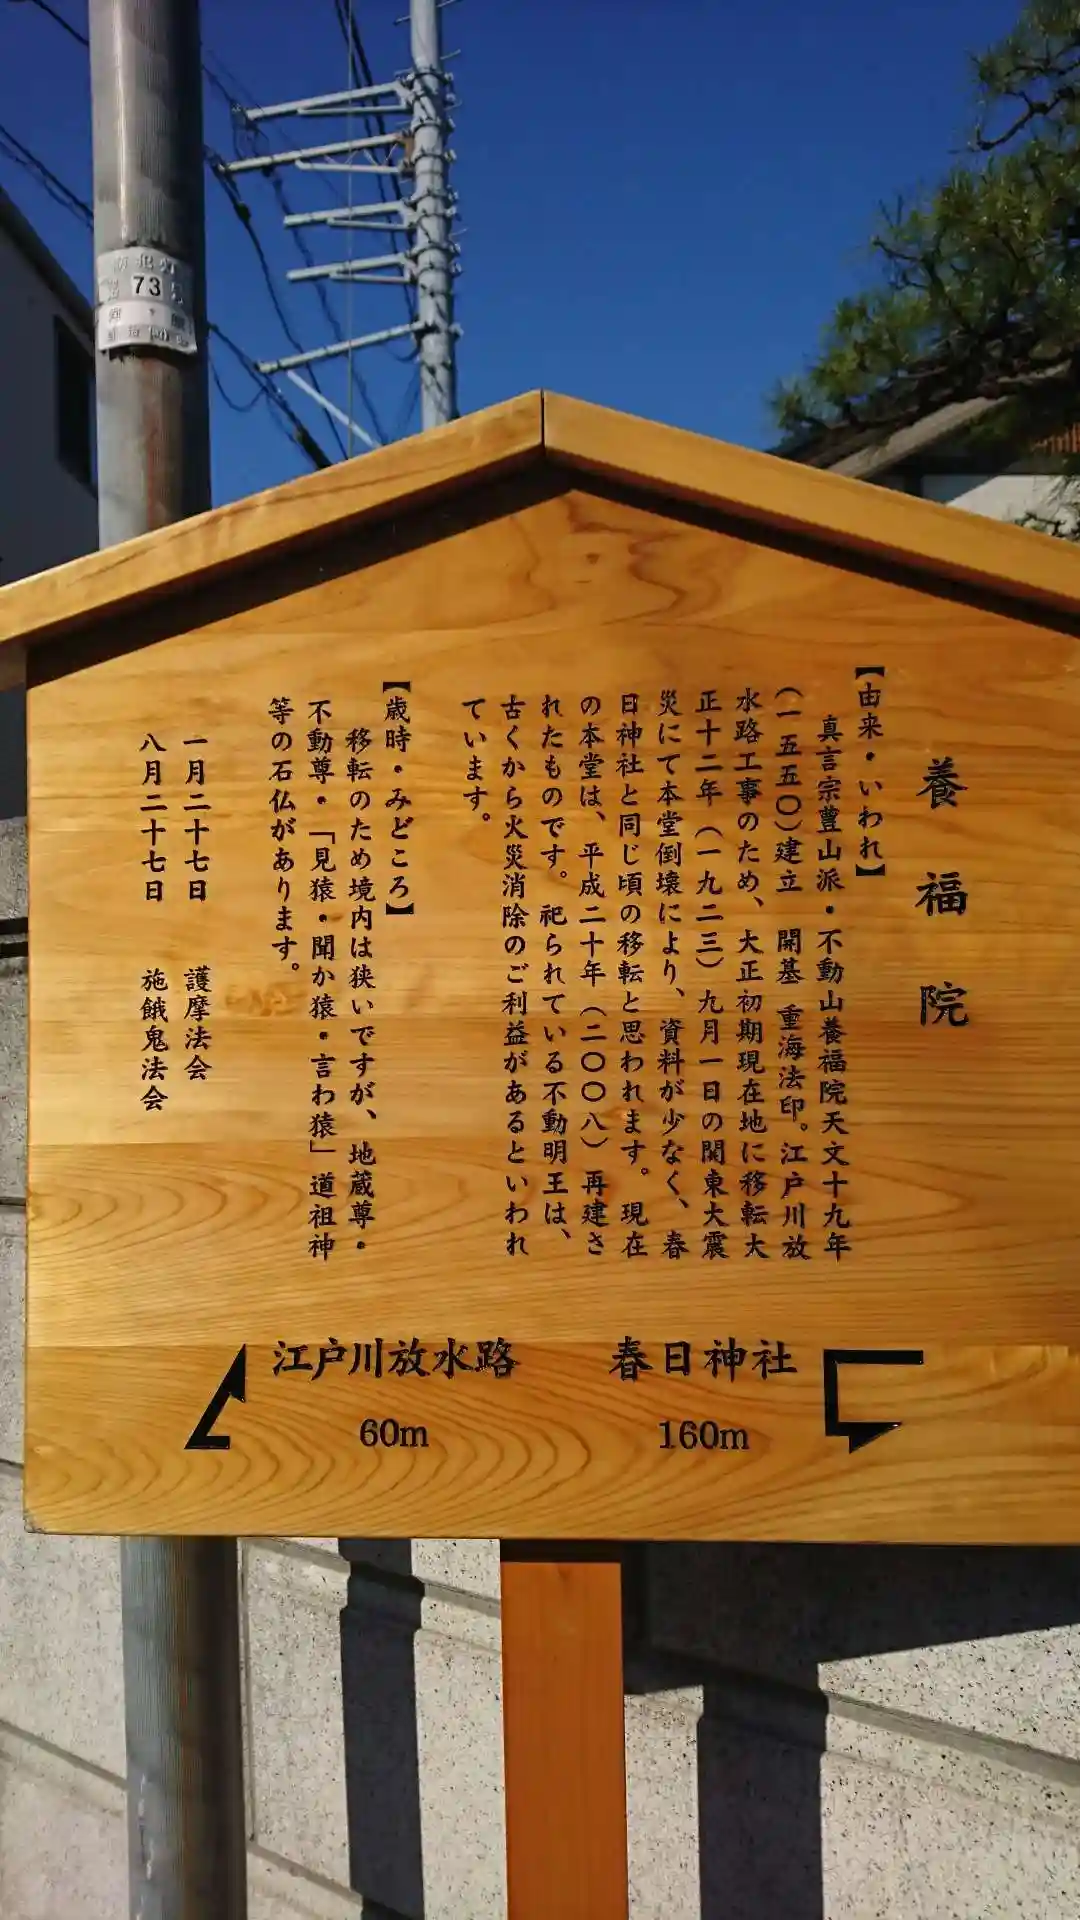 養福院
【由来・いわれ】
真言宗豊山派・不動山養福院天文十九年
(一五五〇)建立 開基 重海法印。江戸川放
水路工事のため、大正初期現在地に移転大
正十二年(一九二三)九月一日の関東大震
災にて本堂倒壊により、資料が少なく、春
日神社と同じ頃の移転と思われます。現在
の本堂は、平成二十年(二〇〇八)再建さ
れたものです。祀られている不動明王は、
古くから火災消除のご利益があるといわれ
ています。
【歳時・みどころ】
移転のため境内は狭いですが、地蔵尊・
不動尊・「見猿・聞か猿・言わ猿」道祖神
等の石仏があります。
一月二十七日 護摩法会
八月二十七日 施餓鬼法会
江戸川放水路
60m
春日神社
160m
防犯灯
73